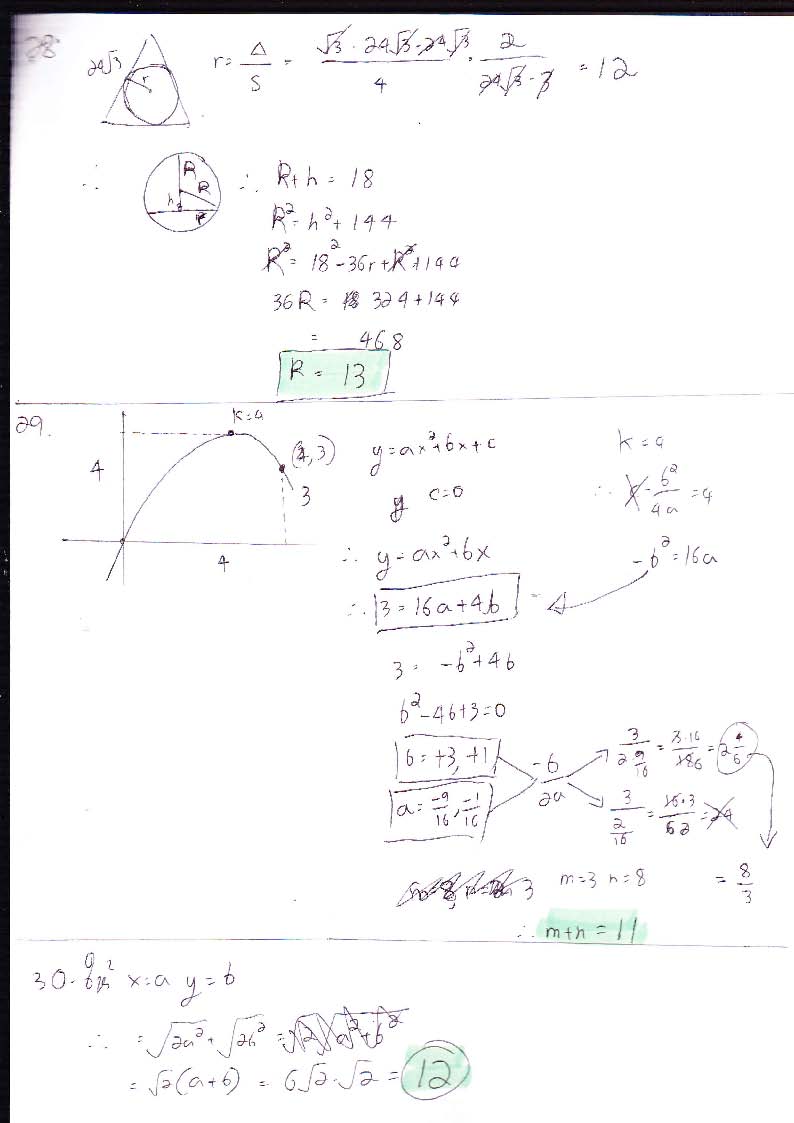 28
24√3
r
r = Δ/S = (√3 · 24√3 · 24√3)/4 · 2/(24√3 · 3) = 12
∴
R
R
h
r
∴ R+h = 18
R² = h² + 144
R² = 18² - 36r + R² + 144
36R = 324 + 144
= 468
R = 13
29.
k=4
(4, 3)
4
3
4
y = ax² + bx + c
y c=0
∴ y = ax² + bx
∴ 3 = 16a + 4b
k = 4
∴ -b²/4a = 4
-b² = 16a
3 = -b² + 4b
b² - 4b + 3 = 0
b = +3, +1
a = -9/16, -1/16
-b/2a
3/(2 9/16) = 3·16/186 = 2 4/6
3/(2/16) = 16·3/62 = 24
= 8/3
3 m=3 n=8
∴ m+n = 11
30. x=a y=b
∴ = √2a² + √2b² = √2 √a²+b²
= √2(a+b) = 6√2·√2 = 12